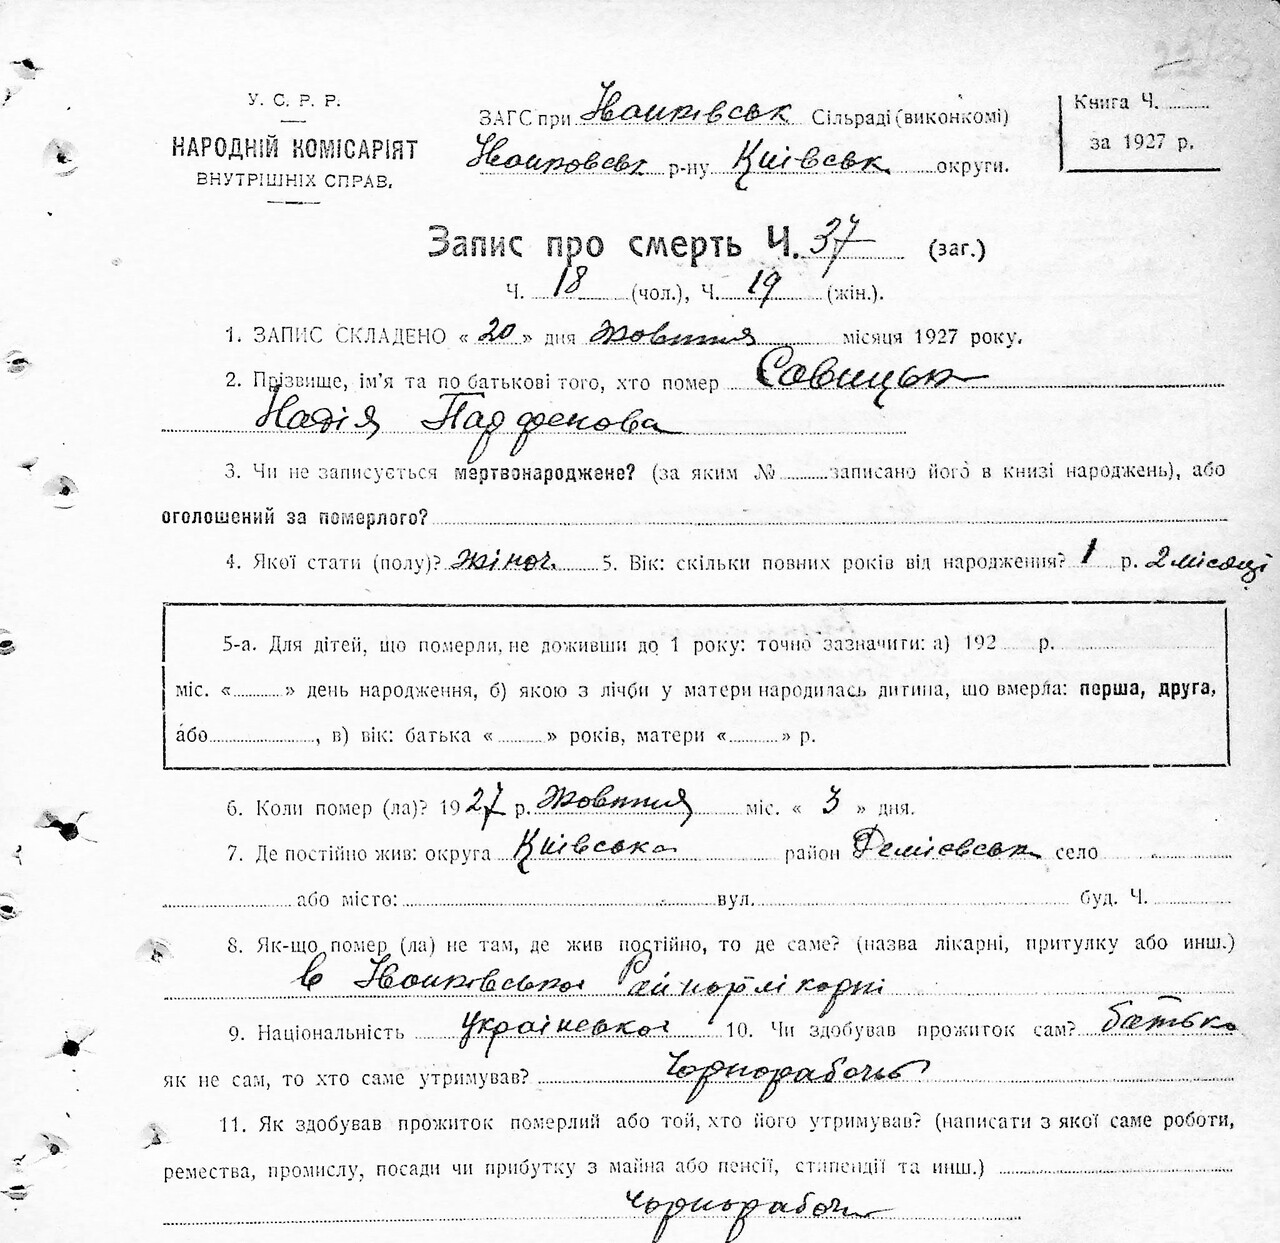 У. С. Р. Р.
НАРОДНІЙ КОМІСАРІЯТ
ВНУТРІШНІХ СПРАВ.
ЗАГС при Іванківськ Сільраді (виконкомі)
Іванковськ р-ну Київськ округи.
Книга Ч.
за 1927 р.
Запис про смерть Ч. 37 (заг.)
Ч. 18 (чол.), Ч. 19 (жін.).
1. ЗАПИС СКЛАДЕНО « 20 » дня Жовтня місяця 1927 року.
2. Прізвище, ім'я та по батькові того, хто помер Савицьк
Надія Парфенова
3. Чи не записується мертвонароджене? (за яким № записано його в книзі народжень), або
оголошений за померлого?
4. Якої стати (полу)? жіноч. 5. Вік: скільки повних років від народження? 1 р. 2 місяці
5-а. Для дітей, що померли, не доживши до 1 року: точно зазначити: а) 192 р.
міс. « » день народження, б) якою з лічби у матери народилась дитина, що вмерла: перша, друга,
або , в) вік: батька « » років, матери « » р.
6. Коли помер (ла)? 1927 р. Жовтня міс. « 3 » дня.
7. Де постійно жив: округа Київська район Демієвськ село
або місто: вул. буд. Ч.
8. Як-що помер (ла) не там, де жив постійно, то де саме? (назва лікарні, притулку або инш.)
в Іванківської Райлікарні
9. Національність українська 10. Чи здобував прожиток сам? батько
як не сам, то хто саме утримував? Чорнорабочь
11. Як здобував прожиток померлий або той, хто його утримував? (написати з якої саме роботи,
ремества, промислу, посади чи прибутку з майна або пенсії, стипендії та инш.)
Чорнорабоч